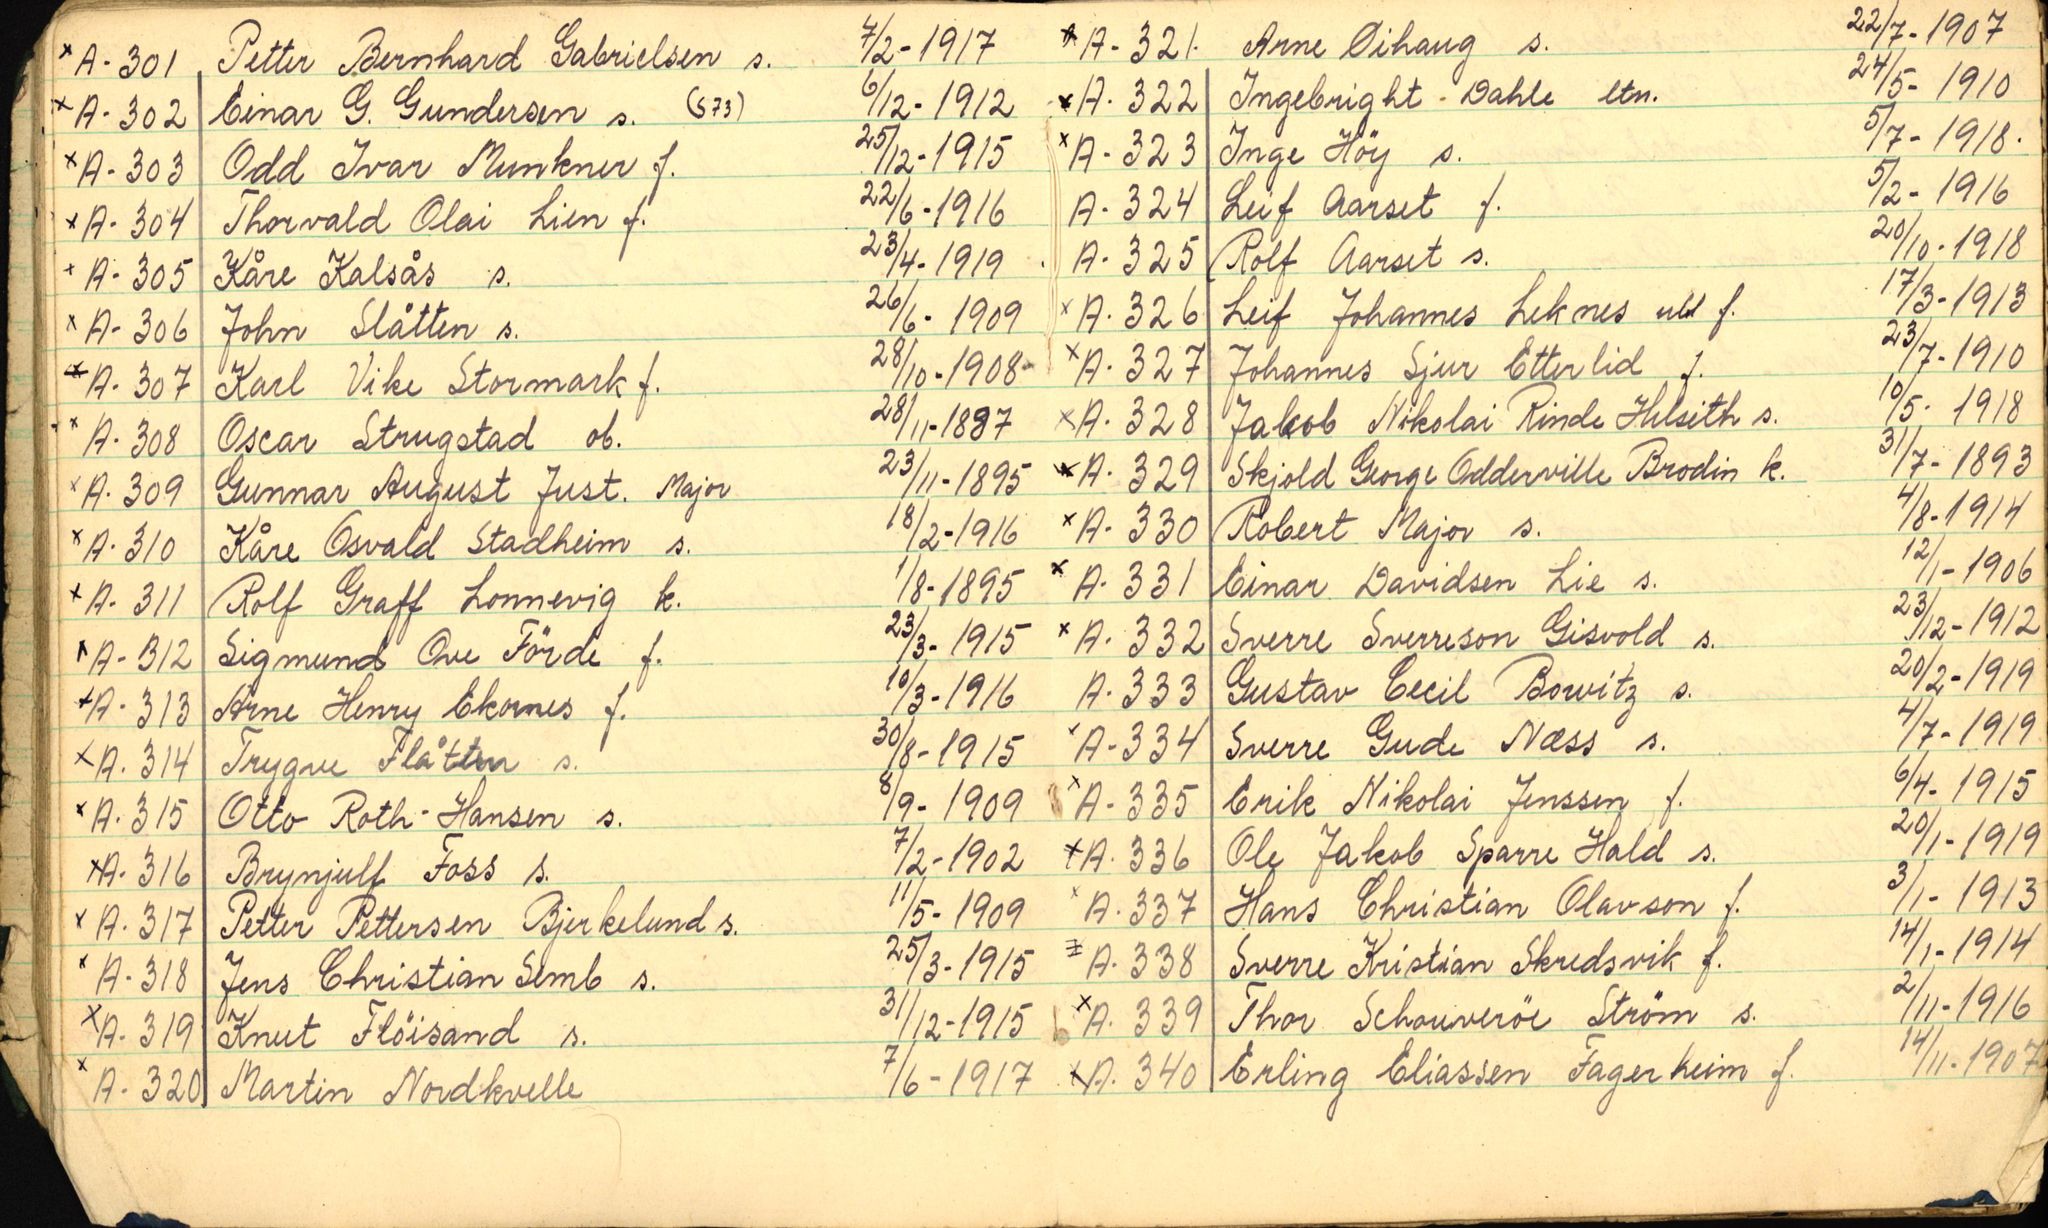 x A-301 Petter Bernhard Gabrielsen s. 4/2-1917
x A-302 Einar G. Gundersen s. (573) 6/12-1912
x A-303 Odd Ivar Munkner f. 25/12-1915
x A-304 Thorvald Olai Lien f. 22/6-1916
x A-305 Kåre Kalsås s. 23/4-1919
x A-306 John Slåtten s. 26/6-1909
x A-307 Karl Vike Stormark f. 28/10-1908
x A-308 Oscar Strugstad ob. 28/11-1887
x A-309 Gunnar August Just. Major 23/11-1895
x A-310 Kåre Osvald Stadheim s. 18/2-1916
x A-311 Rolf Graff Lonnevig k. 1/8-1895
x A-312 Sigmund Ove Förde f. 23/3-1915
x A-313 Arne Henry Ekornes f. 10/3-1916
x A-314 Trygve Flåtten s. 30/8-1915
x A-315 Otto Roth-Hansen s. 8/9-1909
x A-316 Brynjulf Foss s. 7/2-1902
x A-317 Petter Pettersen Bjerkelund s. 11/5-1909
x A-318 Jens Christian Semb s. 25/3-1915
x A-319 Knut Flöisand s. 31/12-1915
x A-320 Martin Nordkvelle 7/6-1917
x A-321. Arne Øihaug s. 22/7-1907
x A-322 Ingebright Dahle ltn. 24/5-1910
x A-323 Inge Höy s. 5/7-1918.
A-324 Leif Aarset f. 5/2-1916
A-325 Rolf Aarset s. 20/10-1918
x A-326 Leif Johannes Leknes f. 17/3-1913
x A-327 Johannes Sjur Etterlid f. 23/7-1910
x A-328 Jakob Nikolai Rinde Hilseth s. 10/5-1918
x A-329 Skjold George Odderville Brodin k. 31/7-1893
x A-330 Robert Major s. 4/8-1914
x A-331 Einar Davidsen Lie s. 12/1-1906
x A-332 Sverre Sverreson Gisvold s. 23/12-1912
A-333 Gustav Cecil Bowitz s. 20/2-1919
x A-334 Sverre Gude Næss s. 4/7-1919
x A-335 Erik Nikolai Jenssen f. 6/4-1915
x A-336 Ole Jakob Sparre Hald s. 20/1-1919
x A-337 Hans Christian Olavson f. 3/1-1913
x A-338 Sverre Kristian Skredsvik f. 14/1-1914
x A-339 Thor Schouveröe Ström s. 2/11-1916
x A-340 Erling Eliassen Fagerheim f. 14/11-1907